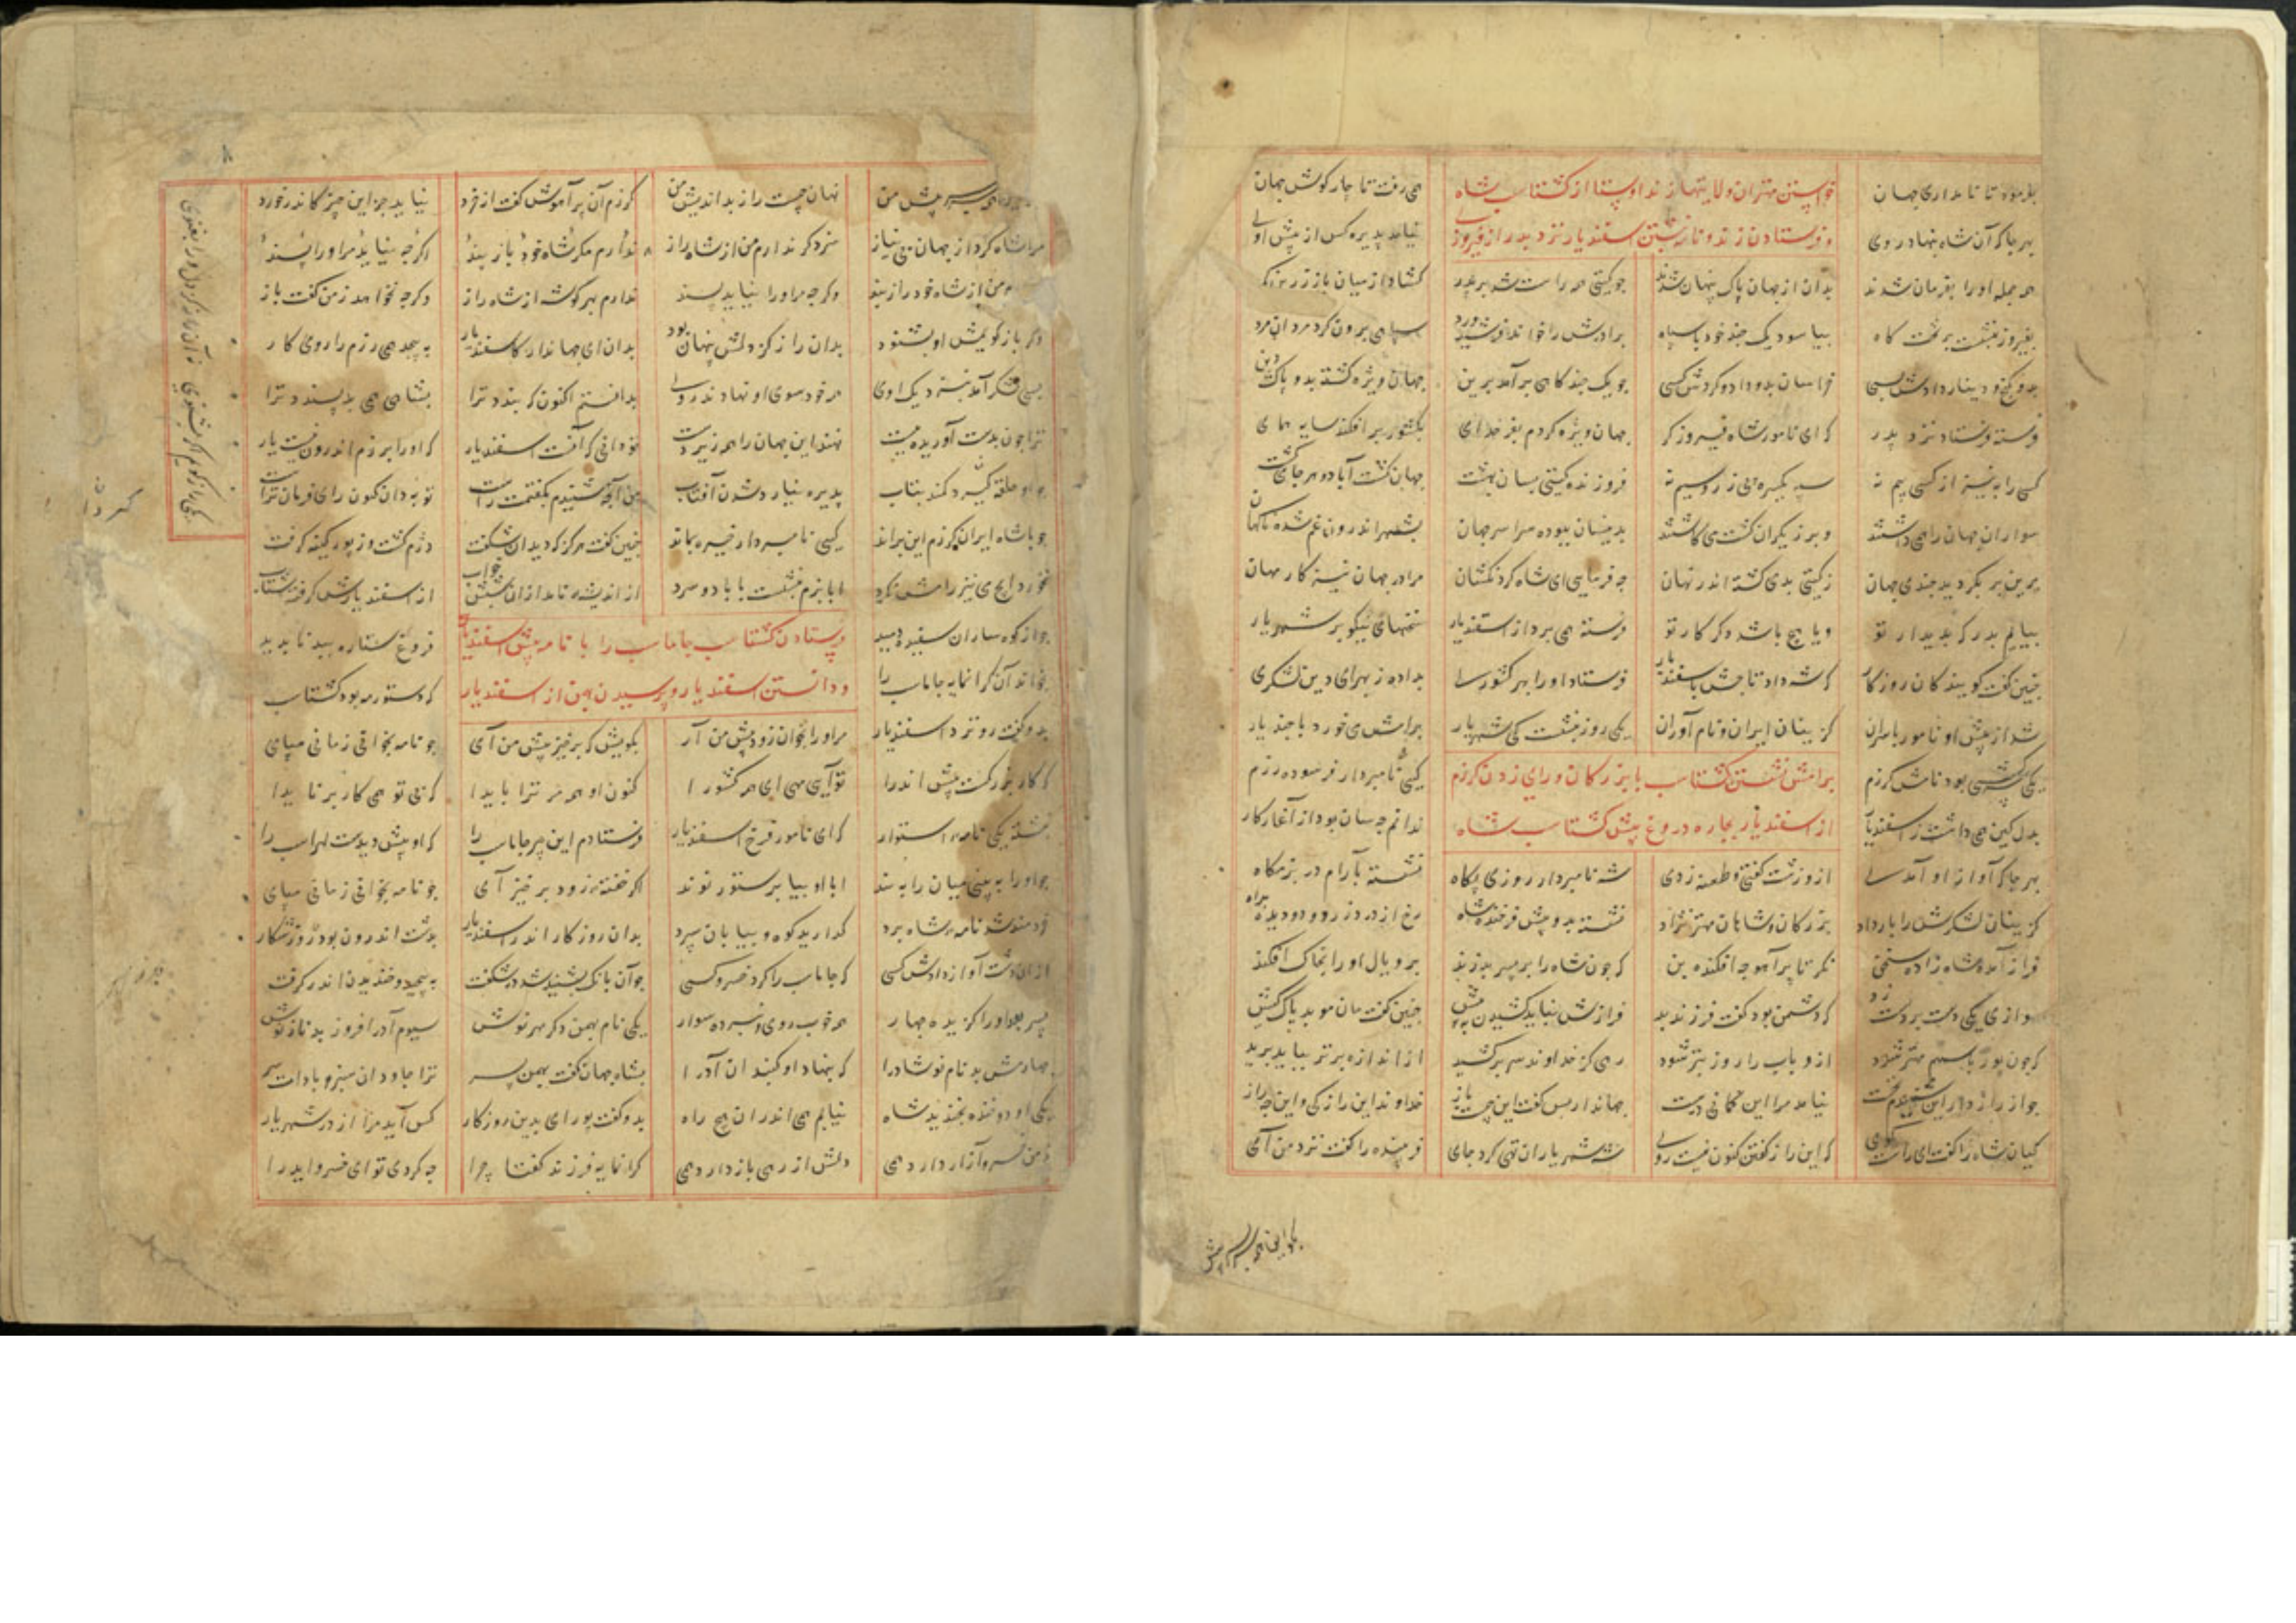 بفرمود تا نامداری جهان خواستن مهتران ولایتها زند اوستا از کشتاسب شاه همی رفت تا چار کوش جهان
بهر جا که آن شاه بنهاد روی و فرستادن زند و نامه نبشتن اسفندیار نزد پدر از فیروزی نیامد پذیره کس از پیش اوی
همه جمله او را بفرمان شدند بدان از جهان پاک پنهان شدند جو کیتی همه راست شد بر پدر کشاد از میان باز زرین کمر
بفیروز بنشست بر تخت کاه بیاسود یک جند خود با سپاه برادرش را خواند فرشیدورد سپاهی برون کرد مردان مرد
بدو کنج و دینار دادش بسی خراسان بدو داد و کردش کسی جو یک جند کاهی بر آمد برین جهان ویژه کشته بدو پاک دین
فرسته فرستاد نزد پدر که ای نامور شاه فیروز کر جهان ویژه کردم بفر خدای بکشور بر افکند سایه همای
کسی را به نیز از کسی بیم نه سپه یکسره بی زر و سیم نه فروزنده کیتی بسان بهشت جهان کشت آباد و هر جای کشت
سواران جهان را همی داشتند و برزیکران کشت می کاشتند بدینسان ببوده سراسر جهان بشهر اندرون غم شده ناکهان
برین بر بکردید جندی جهان ز کیتی بدی کشته اندر نهان جه فرمایی ای شاه کردنکشان مرا در جهان نیست کار مهان
بیایم بدر که بدیدار تو و یا هیج باشد دکر کار تو فرسته همی برد از اسفندیار سخنهای نیکو بر شهریار
جنین کفت کوینده کان روز کار که شه داد تاجش باسفندیار فرستاد او را بهر کشوری بداده ز بهرای دین لشکری
شد از پیش او نامور با سران کزینان ایران و نام آوران یکی روز بنشست کی شهریار برامش می خورد با جند یار
یکی سرکشی بود نامش کرزم برامش نشستن کشتاسب با بزرکان و رای زدن کرزم کیی نامبردار فرسوده رزم
بدل کین همی داشت ز اسفندیار از اسفندیار بجاره دروغ پیش کشتاسب شاه ندانم جه سان بود از آغاز کار
بهر جا که آواز او آمدی ازو زشت کفتی و طعنه زدی شه نامبردار روزی پکاه نشسته بآرام در بزمکاه
کزینان لشکرش را بار داد بزرکان و شاهان مهتر نژاد نشسته بدو پیش فرخنده شاه رخ از درد زرد و دو دیده براه
فراز آمد و شاه زاده سخن نکر تا بر آهو جه افکند بن که جون شاه را بر پسر بد زند بر و یال او را بخاک افکند
هوازی یکی دست بر دست زد که دشمن بود کفت فرزند بد فرازش نباید کشیدن به پیش جنین کفت مان موبد پاک کیش
که جون پور باسهم مهتر شود ازو باب را روز بتر شود رهی کز خداوند سر بر کشید از اندازه برتر بباید برید
جو از راز دار این شنیدم نخست نیامد مرا این کمانی درست جهاندار پس کفت این جیست باز خداوند این راز کی و این جه راز
کیان شاه را کفت ای راست کوی که این راز کفتن کنون نیست روی شه شهریاران تهی کرد جای فریبنده را کفت نزد من آی
نهان جیست راز بداندیش من کرزم آن پر آموش کفت از خرد نیاید جز این جیز کاندر خورد
مرا شاه کرد از جهان بی نیاز سزد کر ندارم من از شاه راز ندارم مکر شاه خود باز پند اکر جه نیاید مرا و را پسند
من از شاه خود راز پند و کر جه مر او را نیاید پسند ندارم بهر کوشه از شاه راز و کر جه نخواهد ز من کفت باز
کر باز کویمش او بشنود بدان راز کز دلش پنهان بود بدان ای جهاندار کاسفندیار به پیجد همی رزم را روی کار
بسی لشکر آمد بنزدیک اوی همه خود سوی او نهادند روی بدانستم اکنون که بندد ترا بشاهی همی بد پسندد ترا
ترا جون بدست آوریده ببست نهند این جهان را همه زیر دست تو دانی که آنست اسفندیار که او را برزم اندرون نیست یار
جو او حلقه کیرد کمند بتاب پذیره نیارد شدن آفتاب من آنج شنیدم بکفتمت راست تو به دان کنون رای و فرمان تراست
جو با شاه ایران کرزم این براند کیی نامبردار خیره بماند جنین کفت هرکز که دید آن شکفت دژم کشت و ز پور کینه کرفت
نخورد ایج می نیز رامش نکرد ابا بزم بنشست با باد سرد از اندیشه نامد از ان شبش خواب از اسفندیارش کرفته شتاب
جو از کوه ساران سپیده دمید فرستادن کشتاسب جاماسب را با نامه پیش اسفندیار فروغ ستاره ببد نا پدید
بخواند آن کرانمایه جاماسب را و دانستن اسفندیار و پرسیدن بهمن از اسفندیار که دستور مه بود کشتاسب
بدو کفت رو نزد اسفندیار مر او را بخوان زود پیش من آر بکویش که برخیز پیش من آی جو نامه بخوانی زمانی مپای
که کار بزرکست پیش اندرا تو آیی همی ای مه کشورا کنون او همه مر ترا بایدا که بی تو همی کار بر نایدا
نبشته یکی نامه استوار که ای نامور فرخ اسفندیار فرستادم این پیر جاماسب را که او پیش دیدست لهراسب را
جو او را به بینی میان را به بند ابا او بیا بر ستور نوند اکر خفته زود برخیز آی جو نامه بخوانی زمانی مپای
خردمند شد نامه شاه برد کدارید کوه و بیابان سپرد بدان روز کار اندر اسفندیار بدشت اندرون بود ز روز شکار
از ان دشت آواز دادش کسی که جاماسب را کرد خسرو کسی جو آن بانک بشنید شد در شکفت به پیجید و خندیدن اندر کرفت
پسر بود او را کزیده جهار همه خوب روی و نبرده سوار یکی نام بهمن دکر مهرنوش سیوم آذر افروز بد ناز نوش
جهارمش بد نام نوشاذرا که بنهاد او کنبد ان آذرا بشاه جهان کفت بهمن پسر ترا جاودان سبز و باداست سر
یکی او دو خنده بخندید شاه نیابم همی اندر ان هیج راه بدو کفت پورای بدین روز کار کس آید مرا از در شهریار
ز من خسرو آزار دارد همی دلش از رهی باز دارد همی کرانمایه فرزند کفتا چرا جه کردی تو ای خسرو ایدرا